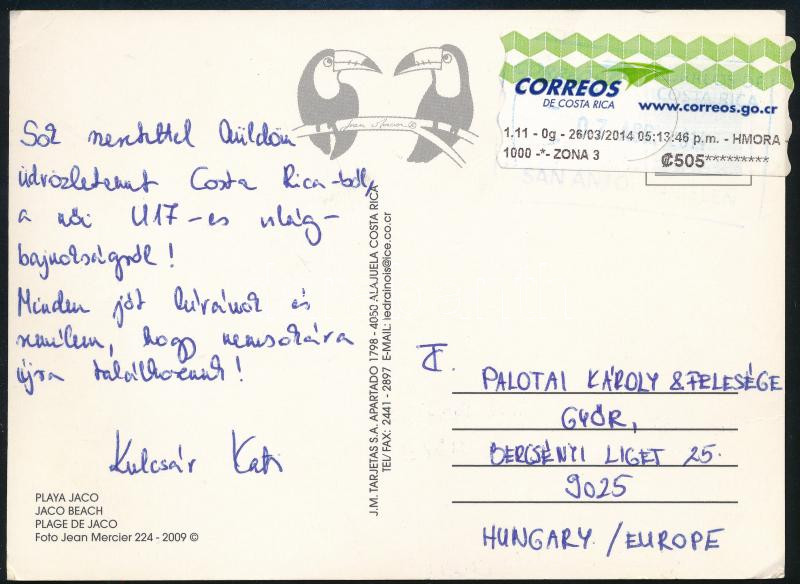 Sok szeretettel küldöm
üdvözletemet Costa Rica-ból,
a női U17-es világ-
bajnokságról!
Minden jót kívánok és
remélem, hogy nemsokára
újra találkozunk!
Kulcsár Kati
PLAYA JACO
JACO BEACH
PLAGE DE JACO
Foto Jean Mercier 224 - 2009 ©
J.M. TARJETAS S.A. APARTADO 1798 - 4050 ALAJUELA COSTA RICA
TEL/FAX: 2441 - 2897 E-MAIL: iedrainois@ice.co.cr
CORREOS
DE COSTA RICA
www.correos.go.cr
1.11 - 0g - 26/03/2014 05:13:46 p.m. - HMORA -
1000 -*- ZONA 3
₡505*********
COSTA RICA
SAN ANTONIO
PALOTAI KÁROLY & FELESÉGE
GYŐR,
BERCSÉNYI LIGET 25.
9025
HUNGARY / EUROPE